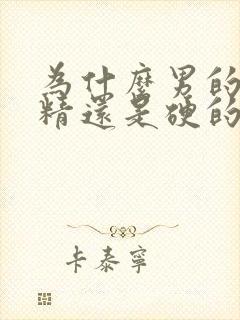 為什麼男的
精還是硬的
卡泰寧